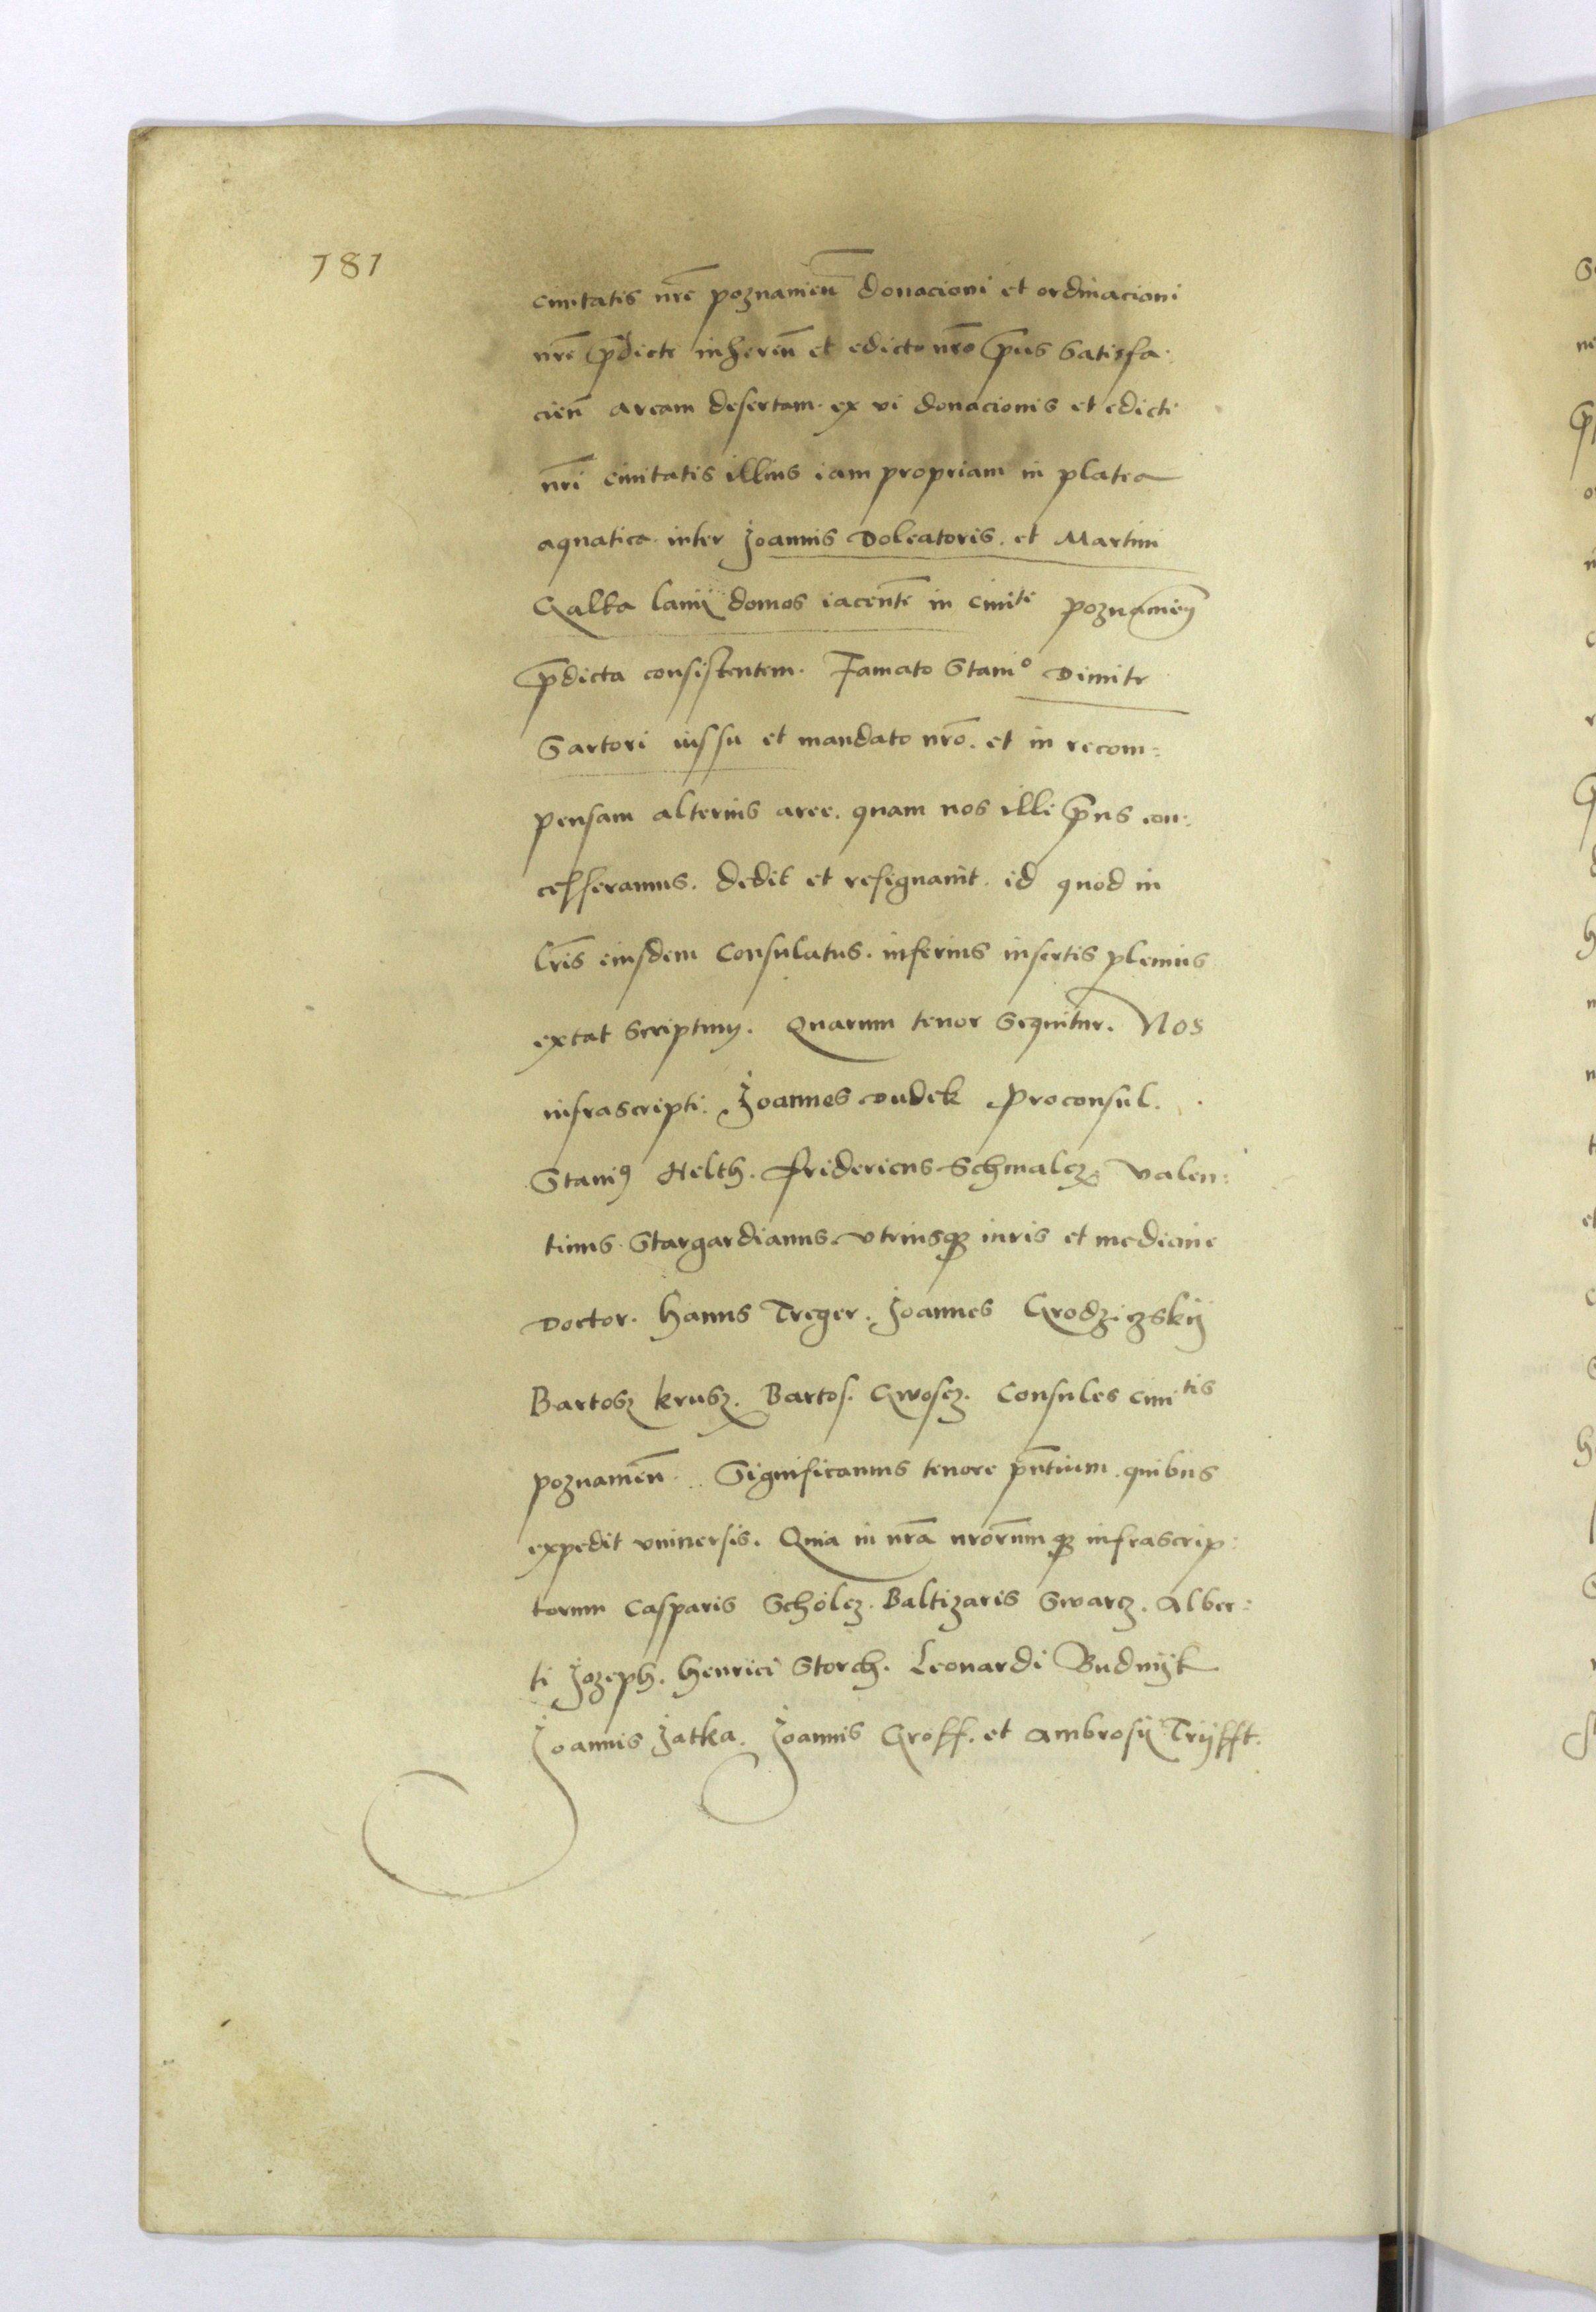 181
ciuitatis nrē poznanień donacioni et ordinacioni
nrē pdicte inhereñ et edicto nrō prius Satisfa:
cień aream desertam ex vi donacionis et edicti
nrī ciuitatis illius iam propriam in platea
aquatica inter Joannis Doleatoris. et Martini
Galka lanij domos iacentē in ciuite poznanień
pdicta consistentem. Famato Staniº Dimitr
Sartori iussu et mandato nrō. et in recom=
pensam alterius aree. quam nos illi prius con:
cesseramus. dedit et resignauit. id quod in
lrīs eiusdem Consulatus. inferius insertis plenius
extat Scriptum. Quarum tenor Sequitur. Nos
infrascripti. Joannes Dudek Proconsul.
Staniꝰ Helth. Fridericus Schmalcz valen:
tinus Stargardianus vtriusqꝫ iuris et medicine
Doctor. Hanns Treger. Joannes Grodziczskij
Bartosz krusz. Bartos. Gwoscz. Consules ciuitis
poznanień. Significamus tenore pñtium quibus
expedit vniuersis. Quia in nrā nrōrumqꝫ infrascrip:
torum Casparis Scholcz. Baltizaris Swarcz. Alber=
ti Jozeph. Henrici Storch. Leonardi Budnijk
Joannis Jatka. Joannis Groff. et Ambrosij Trijfft.